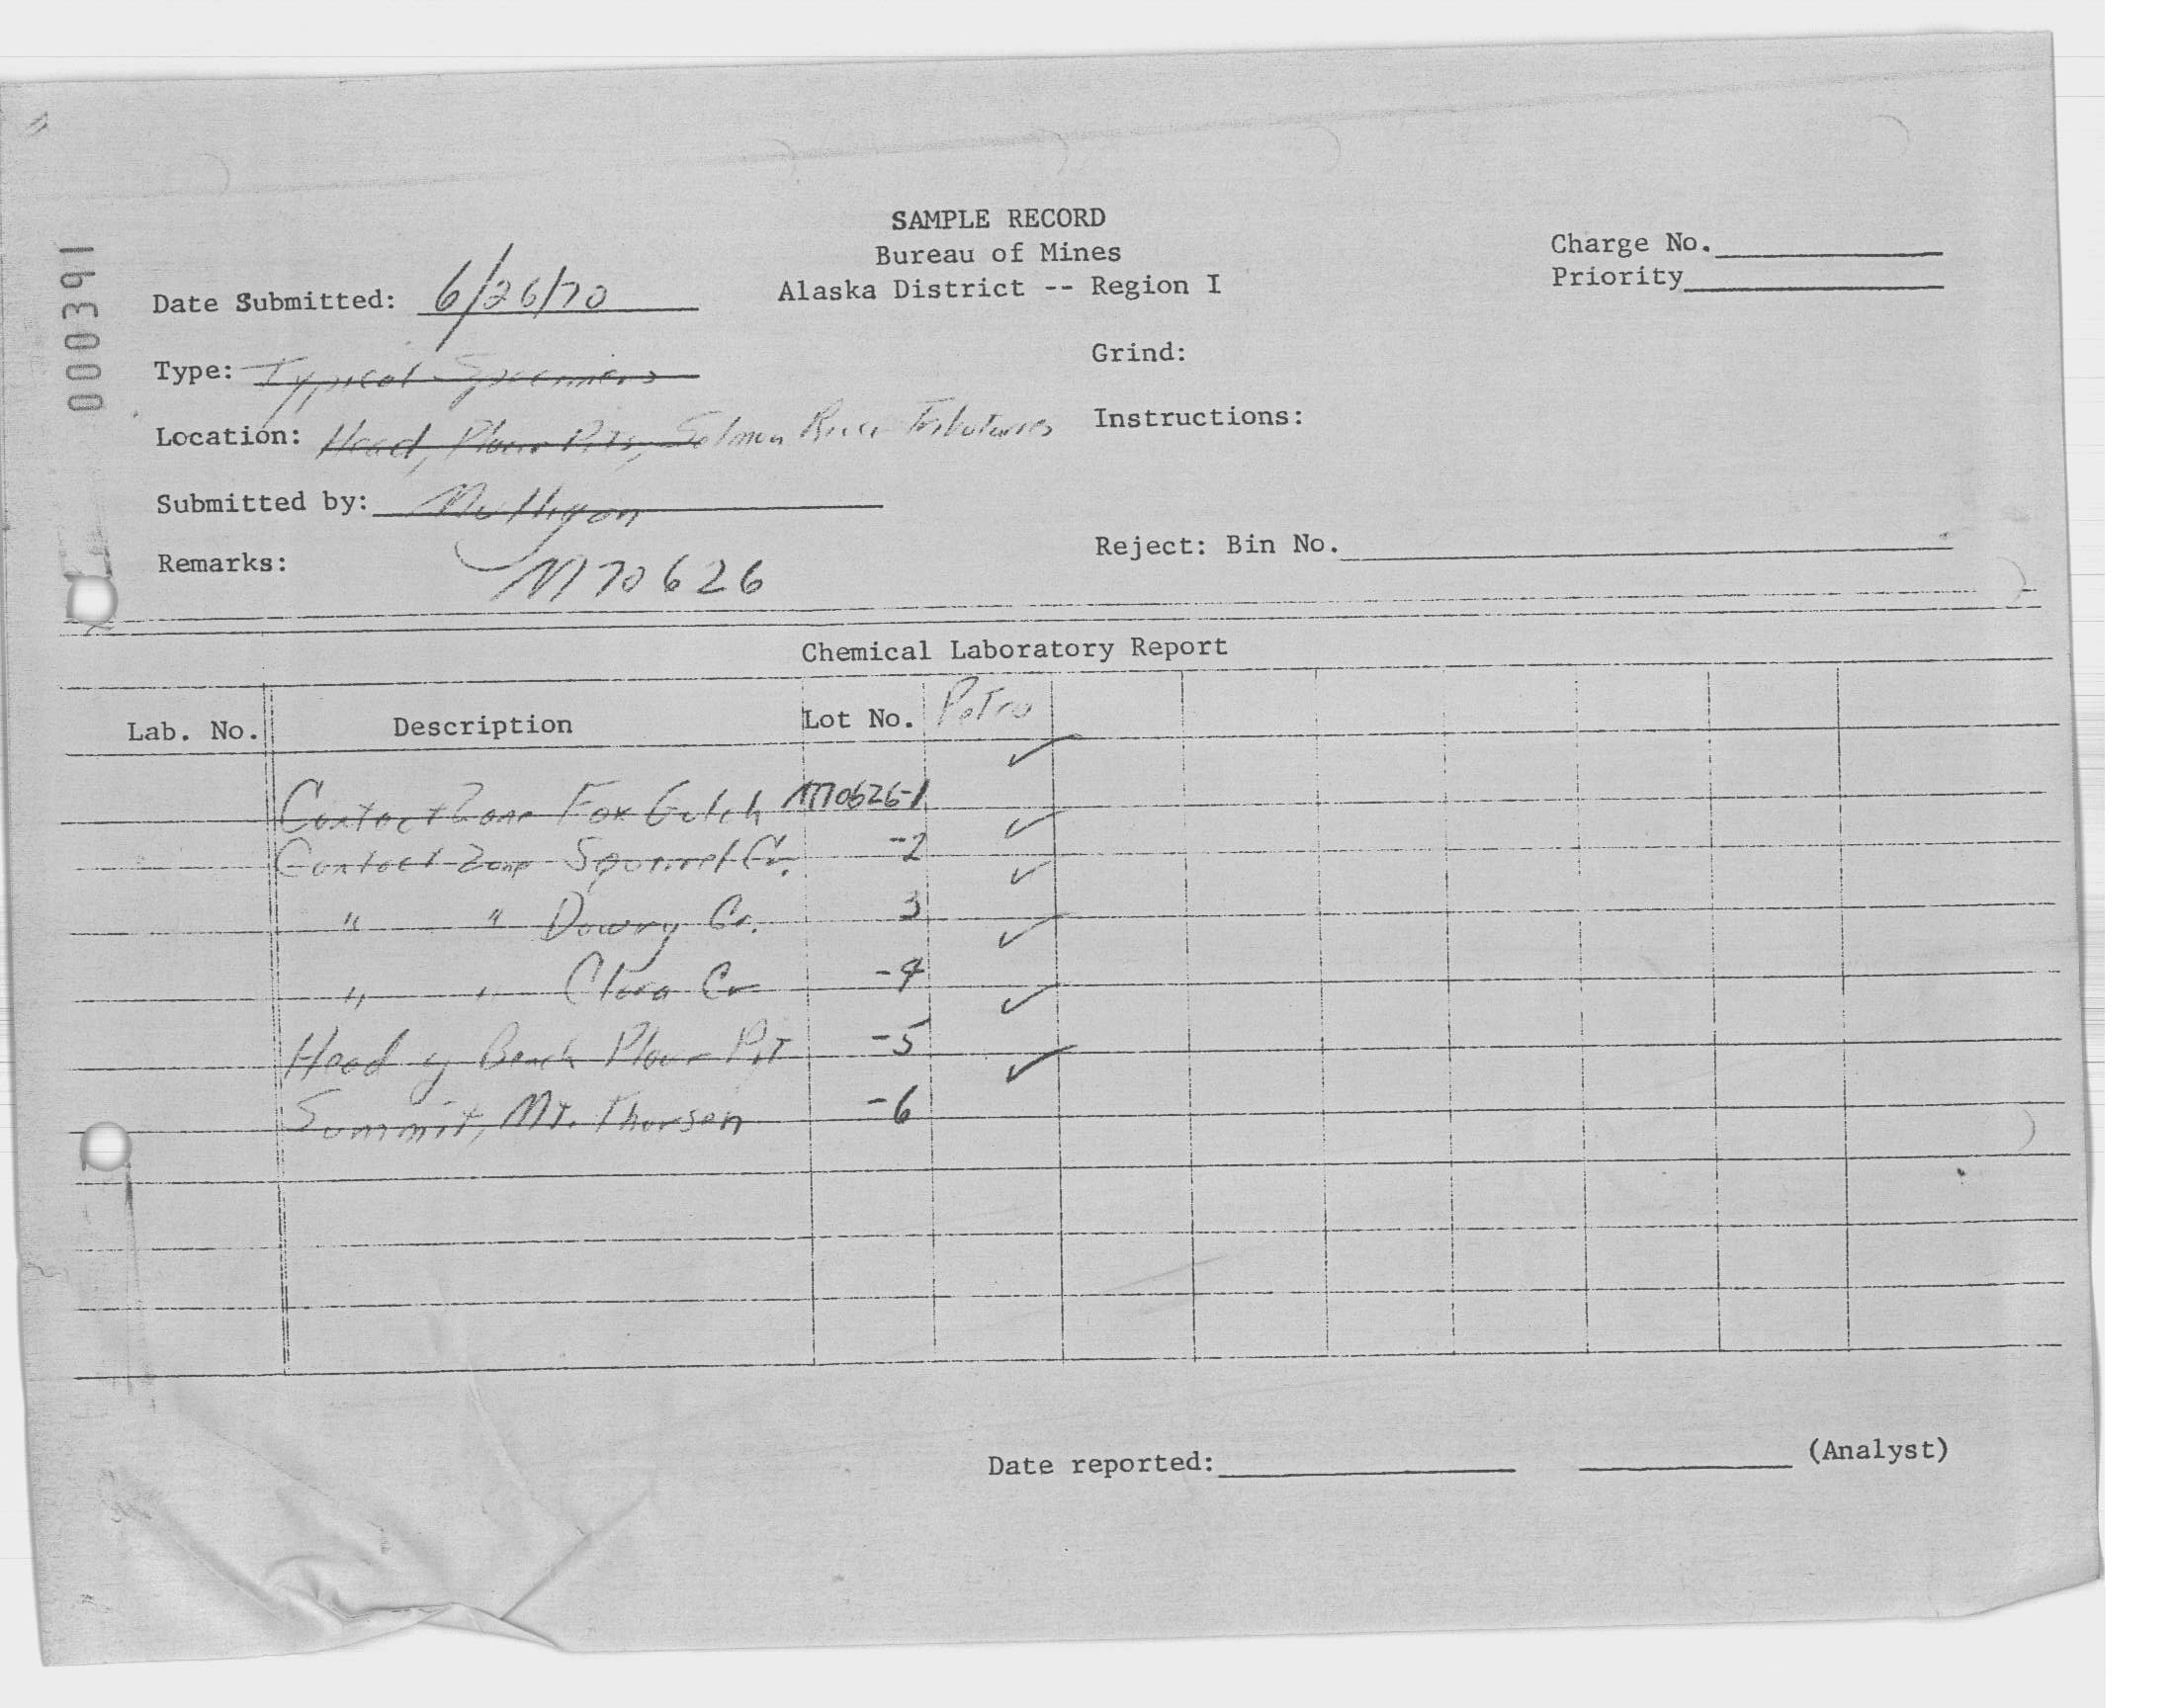 000391
SAMPLE RECORD
Bureau of Mines
Alaska District -- Region I
Charge No.
Priority
Date Submitted: 6/26/70
Type: Typical Specimens
Grind:
Location: Head, Placer Pits, Salmon River Tributaries
Instructions:
Submitted by: Mulligan
Reject: Bin No.
Remarks: M70626
Chemical Laboratory Report
Lab. No. Description Lot No. Petro
Contact Zone Fox Gulch M70626-1 ✓
Contact Zone Squirrel Cr. -2 ✓
" " Dowry Cr. 3 ✓
" " Clara Cr -4 ✓
Head of Bench Placer Pit -5 ✓
Summit, Mt. Thorsen -6 ✓
Date reported: (Analyst)